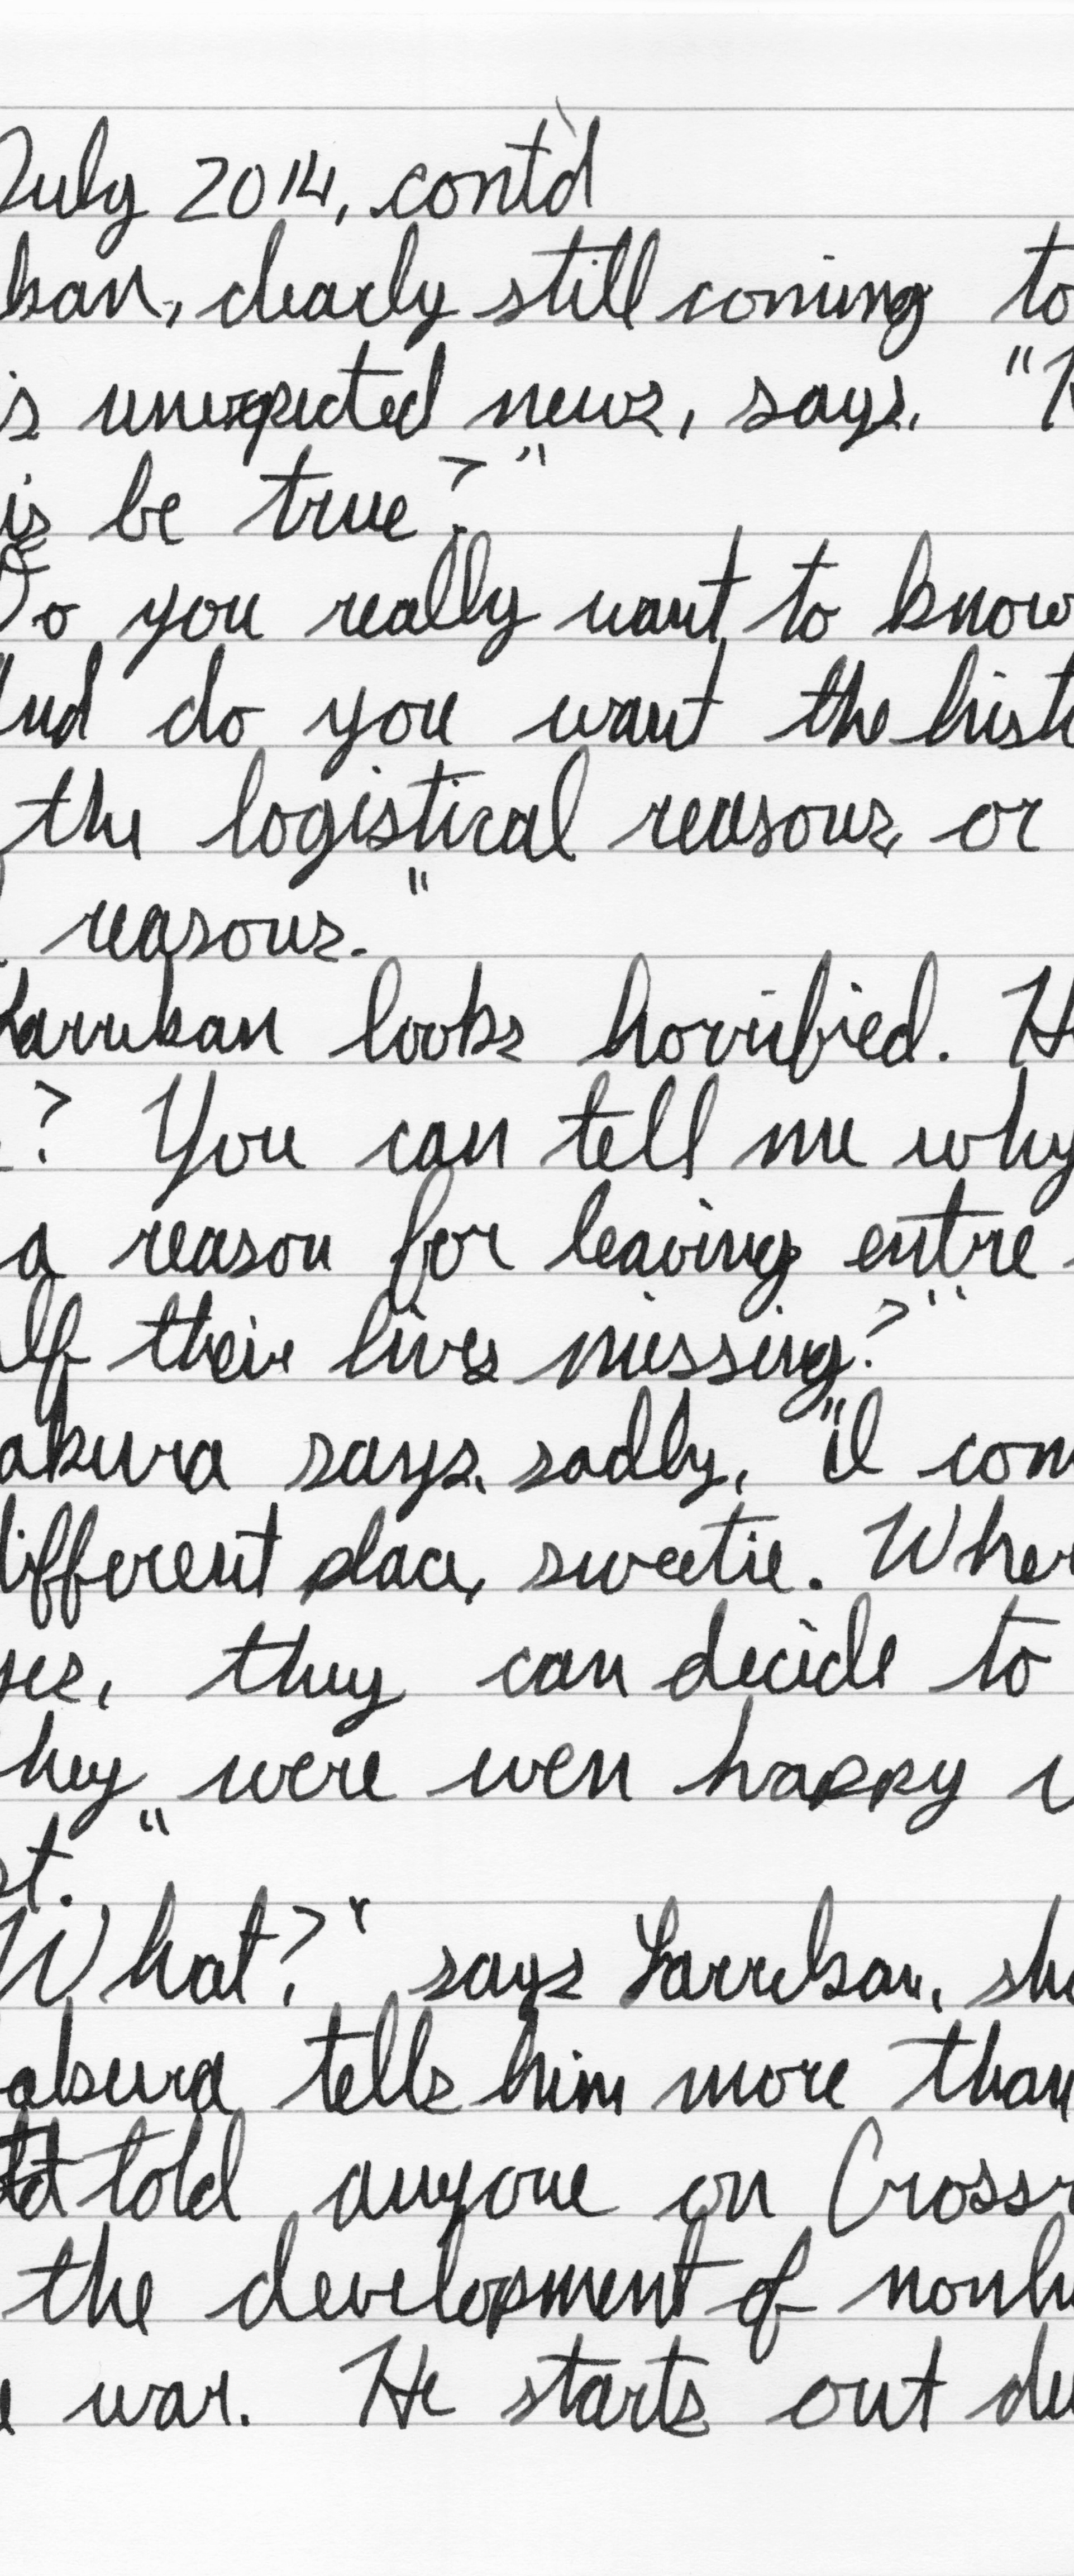 July 2014, cont'd
ban, clearly still coming to
is unexpected news, says, "H
is be true?"
Do you really want to know
And do you want the histo
the logistical reasons, or
reasons."
Larrikan looks horrified. He
? You can tell me why
a reason for leaving entire
lf their lives missing?"
akura says, sadly, "I com
different place, sweetie. Wher
yes, they can decide to
hey were even happy w
st."
What?" says Larrikan, sho
akura tells him more than
told anyone on Crossr
the development of nonhu
e war. He starts out de